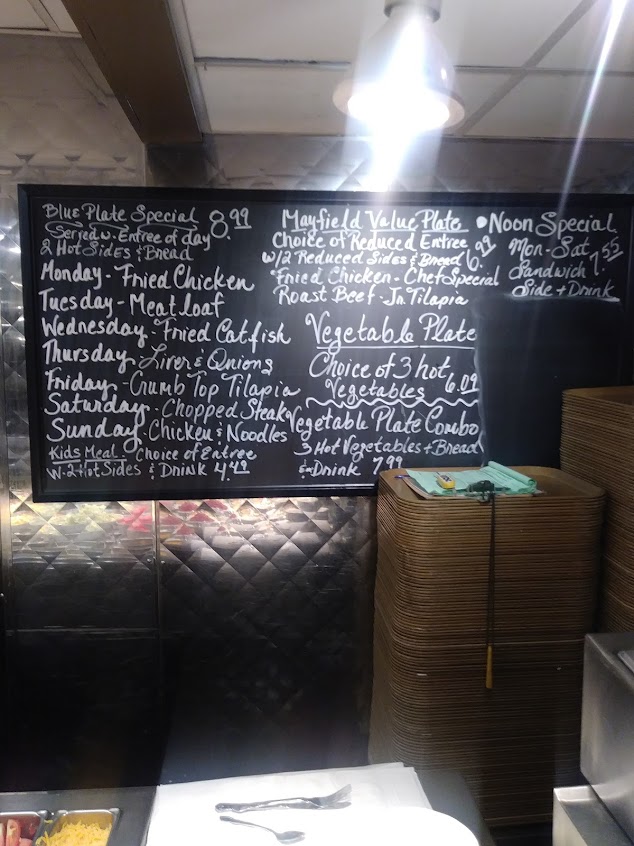 Blue Plate Special 8.99
Served w. Entree of day
2 Hot Sides & Bread
Monday - Fried Chicken
Tuesday - Meatloaf
Wednesday - Fried Catfish
Thursday - Liver & Onions
Friday - Crumb Top Tilapia
Saturday - Chopped Steak
Sunday - Chicken & Noodles
Kids Meal - Choice of Entree
w. 2 Hot Sides & Drink 4.49
Mayfield Value Plate
Choice of Reduced Entree
w/2 Reduced Sides & Bread 6.99
Fried Chicken - Chef Special
Roast Beef - Jr. Tilapia
Vegetable Plate
Choice of 3 hot
Vegetables 6.09
Vegetable Plate Combo
3 Hot Vegetables + Bread
& Drink 7.99
• Noon Special
Mon - Sat
Sandwich 7.55
Side + Drink